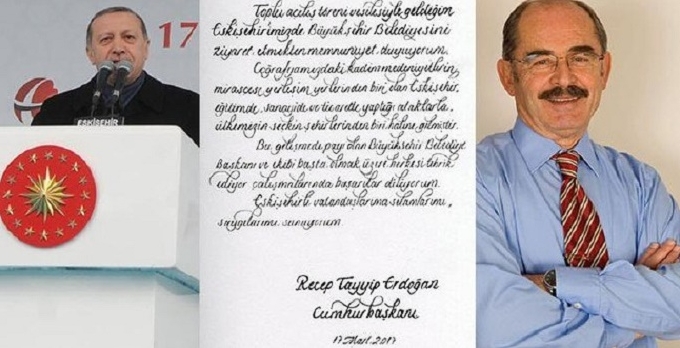 17
ESKİŞEHİR
Toplu açılış töreni vesilesiyle geldiğim
Eskişehir'imizde Büyükşehir Belediyesini
ziyaret etmekten memnuniyet duyuyorum.
Coğrafyamızdaki kadim medeniyetlerin
mirasçısı, yerleşim yerlerinden biri olan Eskişehir,
eğitimde, sanayide ve ticarette yaptığı ataklarla,
ülkemizin seçkin şehirlerinden biri haline gelmiştir.
Bu gelişmede payı olan Büyükşehir Belediye
Başkanı ve ekibi başta olmak üzere herkesi tebrik
ediyor çalışmalarında başarılar diliyorum.
Eskişehirli vatandaşlarıma selamlarımı,
saygılarımı sunuyorum.
Recep Tayyip Erdoğan
Cumhurbaşkanı
17 Mart 2017